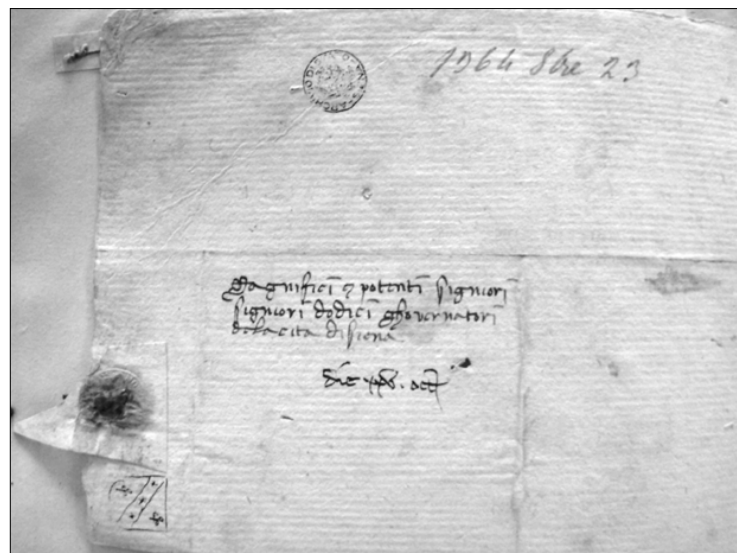 1364 8bre 23
Magnifici e potenti signiori
signiori dodici ghovernatori
dela cita di siena
die xxv. oct